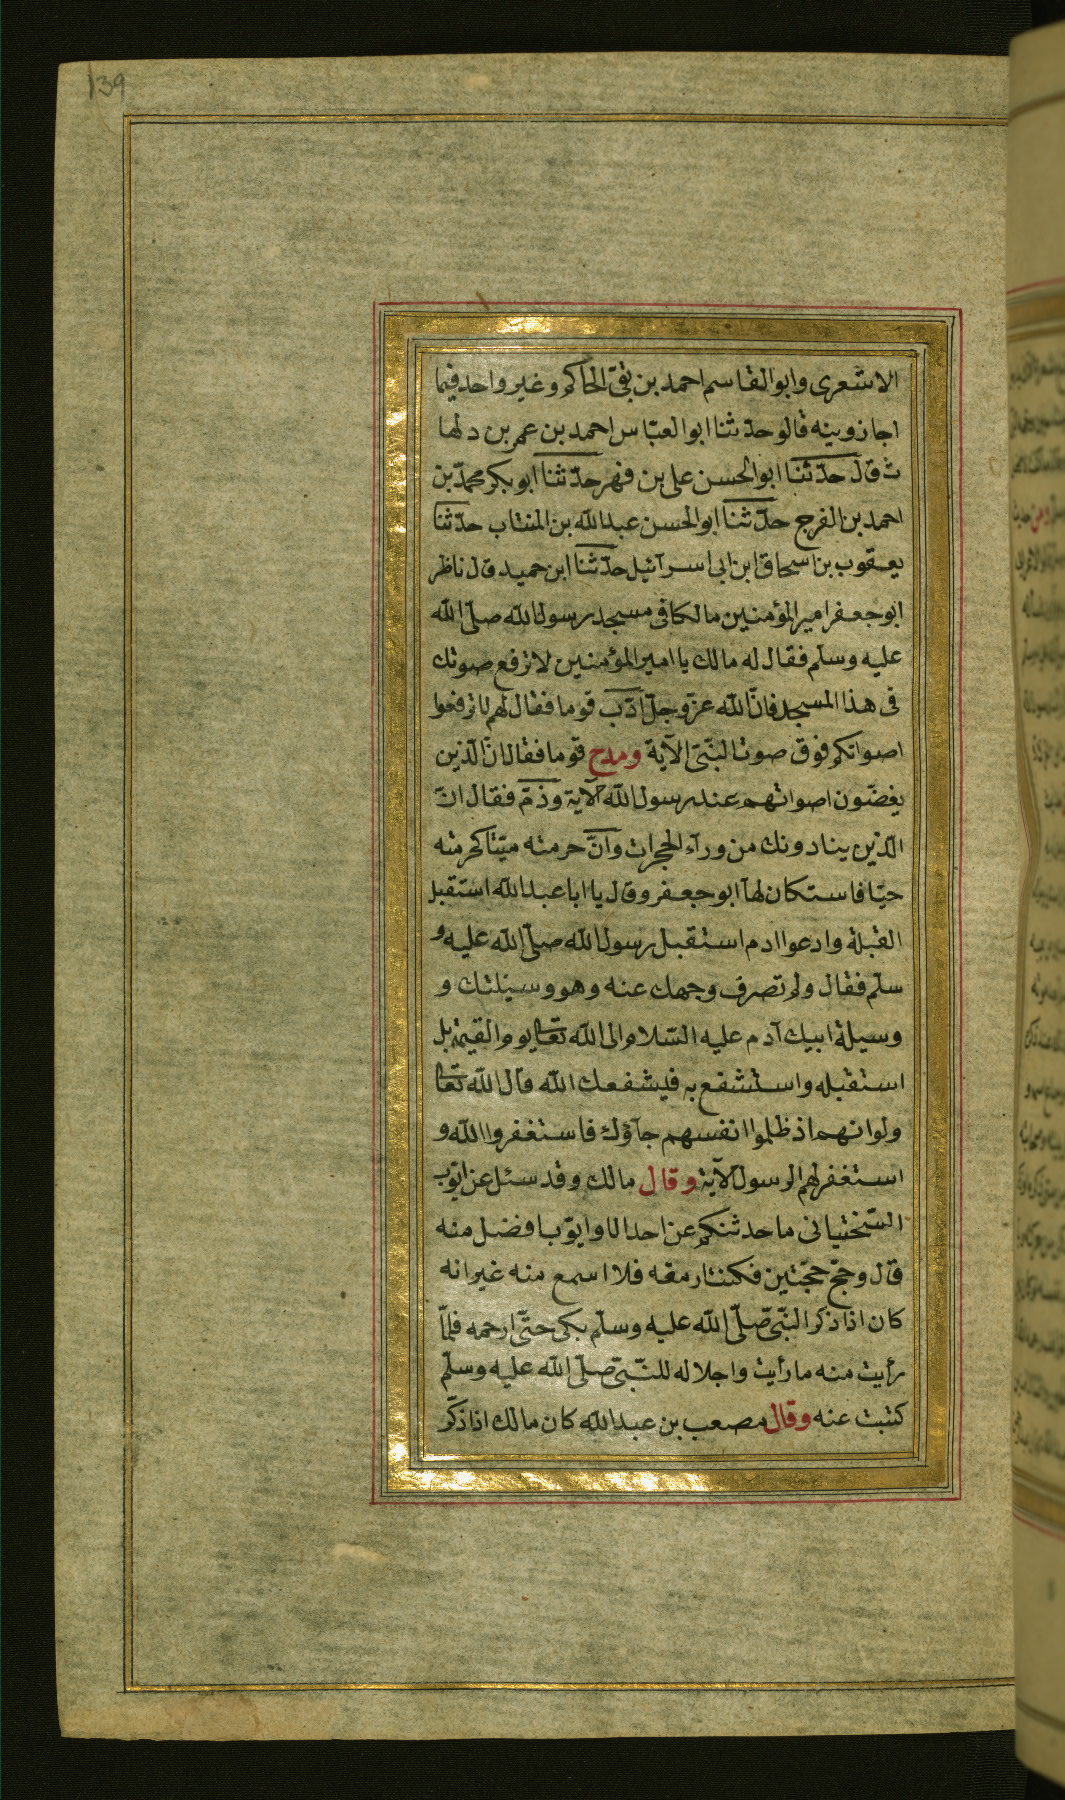 139
الاشعرى وابو القاسم احمد بن بقىّ الحاكم وغير واحد فيما
اجازوينه قالو حدّثنا ابو العبّاس احمد بن عمر بن دلها
ث قال حدّثنا ابو الحسن على بن فهر حدّثنا ابو بكر محمّد بن
احمد بن الفرج حدّثنا ابو الحسن عبد الله بن المنتاب حدّثنا
يعقوب بن اسحاق ابن ابى اسرآئيل حدّثنا ابن حميد قال ناظر
ابو جعفر امير المؤمنين مالكا فى مسجد رسول الله صلّى الله
عليه وسلّم فقال له مالك يا امير المؤمنين لا ترفع صوتك
فى هذا المسجد فانّ الله عزّ وجلّ ادّب قوما فقال لهم لا ترفعوا
اصواتكم فوق صوت النّبىّ الآية ومدح قوما فقال انّ الّذين
يغضّون اصواتهم عند رسول الله الآية وذمّ فقال انّ
الّذين ينادونك من ورآء الحجرات وانّ حرمته ميّتا كحرمته
حيّا فاستكان لهآ ابو جعفر وقال يا ابا عبد الله استقبل
القبلة وادعوا ادم استقبل رسول الله صلّى الله عليه و
سلّم فقال ولم تصرف وجهك عنه وهو وسيلتك و
وسيلة ابيك آدم عليه السّلام الى الله تعالى يوم القيمة بل
استقبله واستشفع به فيشفعك الله قال الله تعالى
ولو انهم اذ ظلموا انفسهم جآؤك فاستغفروا الله و
استغفر لهم الرسول الآية وقال مالك وقد سئل عن ايّوب
السّختيانى ما حدثتكم عن احد الا وايّوب افضل منه
قال وحجّ حجّتين فكنت ارمقه فلا اسمع منه غير انه
كان اذا ذكر النّبىّ صلّى الله عليه وسلّم بكى حتّى ارحمه فلمّا
رأيت منه ما رأيت واجلاله للنّبىّ صلّى الله عليه وسلّم
كتبت عنه وقال مصعب بن عبد الله كان مالك اذا ذكّر